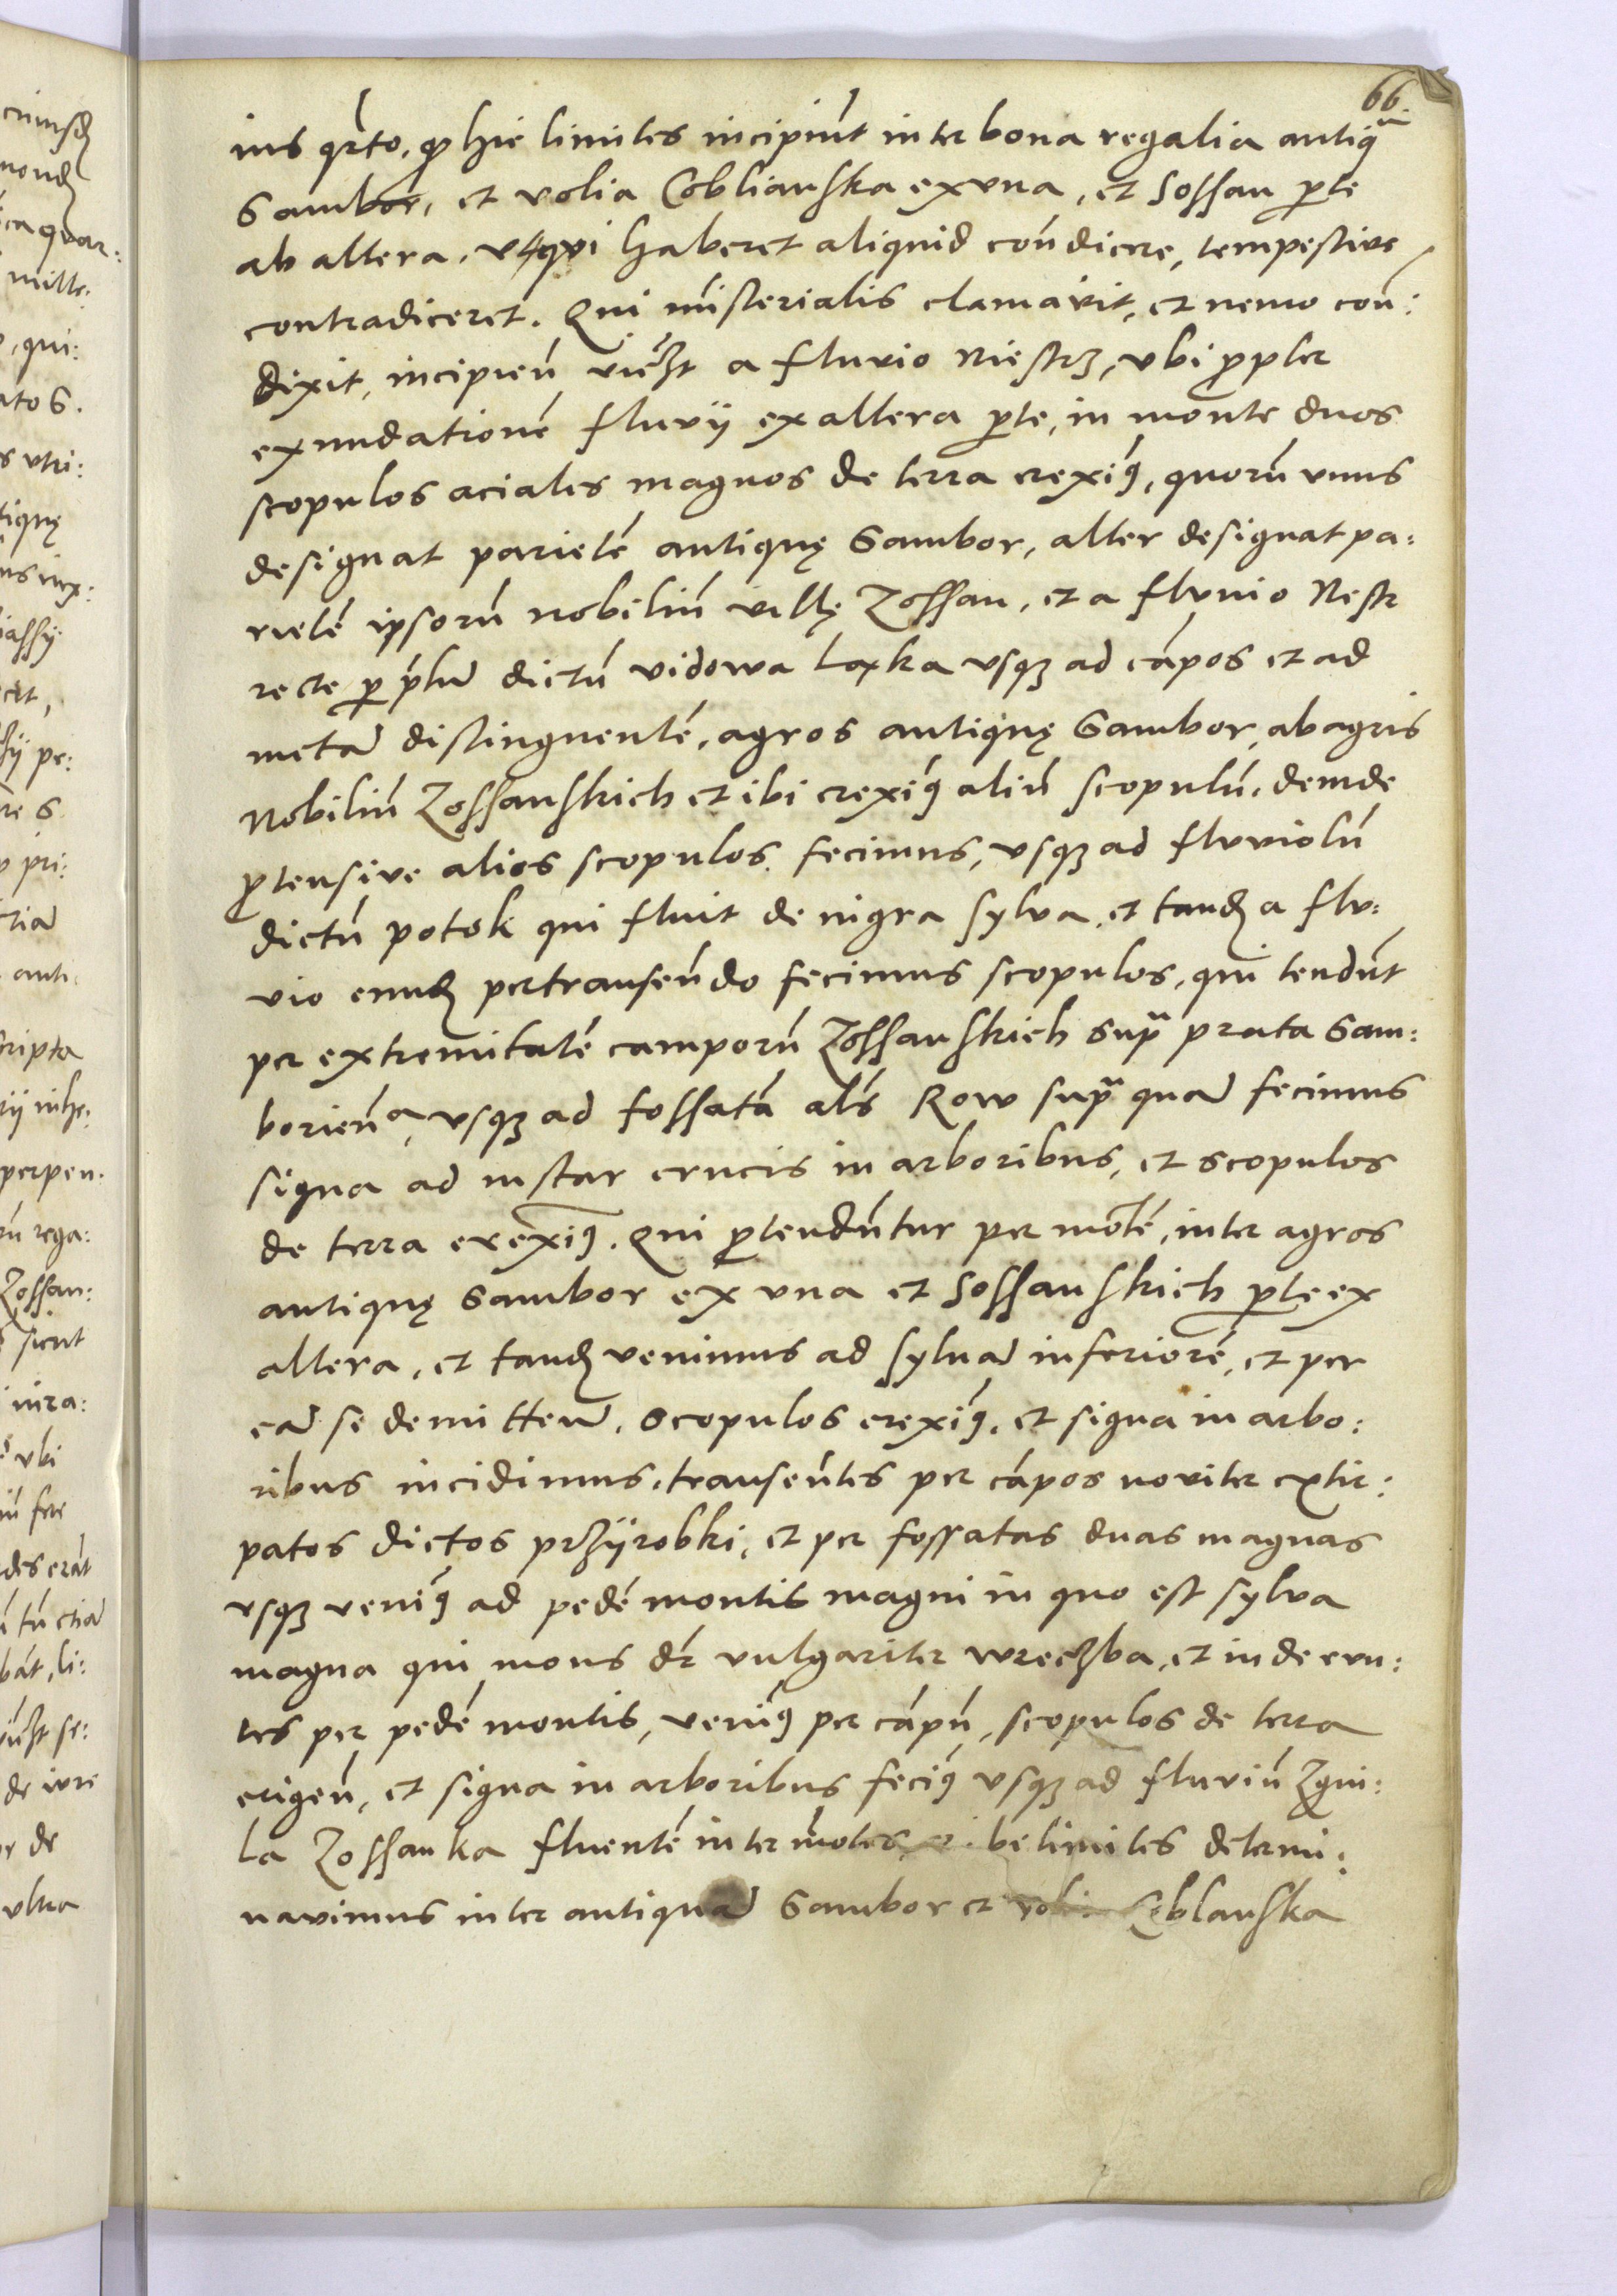 66.
ius qrto, ꝙ hic limites incipiūt inter bona regalia antiqᵃ̄
Sambor, et volia Coblianska ex vna, et Sossan ꝑte
ab altera, vt qui haberet aliquid con̄dicere, tempestive
contradiceret. Qui mīsterialis clamavit, et nemo con̄:
dixit, incipien̄ vicꝫt a fluvio Niestrꝫ, vbi ꝓpter
exundationē fluvij ex altera ꝑte, in monte duos
scopulos aciales magnos de terra erexim̄ꝰ, quorū vnus
designat parietē antiquę Sambor, alter designat pa:
rietē ipsorū nobiliū villę Zossan, et a fluuio Nestr
recte ꝑ ꝑtū dictū vidowa Laxka vsqꝫ ad cāpos et ad
metā distinguentē, agros antiquę Sambor, ab agris
Nobiliū Zossanskich et ibi erexim̄ꝰ aliū scopulū, deinde
ꝓtensive alios scopulos fecimus, vsqꝫ ad fluviolū
dictū potok qui fluit de nigra sylva, et tandꝫ a flu:
vio eundꝫ pertranseūdo fecimus scopulos, qui tendūt
per extremitatē camporū Zossanskich supᵃ prata Sam:
borien̄a, vsqꝫ ad fossatā als̄ Row supᵃ quā fecimus
signa ad instar crucis in arboribus, et scopulos
de terra erexim̄ꝰ. Qui ꝓtendūtur per mōtē, inter agros
antiquę Sambor ex vna et Sossanskich ꝑte ex
altera, et tandꝫ venimus ad sylvā inferiorē, et per
eā se demitten̄, scopulos erexim̄ꝰ, et signa in arbo:
ribus incidimus, transeūtes per cāpos noviter extir:
patos dictos przÿrobki, et per fossatas duas magnas
vsqꝫ venim̄ꝰ ad pedē montis magni in quo est sylva
magna qui mons dr̄ vulgariter wreczba, et inde eun:
tes per pedē montis, venim̄ꝰ per cāpū, scopulos de terra
erigen̄, et signa in arboribus fecim̄ꝰ vsqꝫ ad fluviū Zgni:
la Zossanka fluentē inter mōtes, limites determi:
navimus inter antiquā Sambor et Coblanska